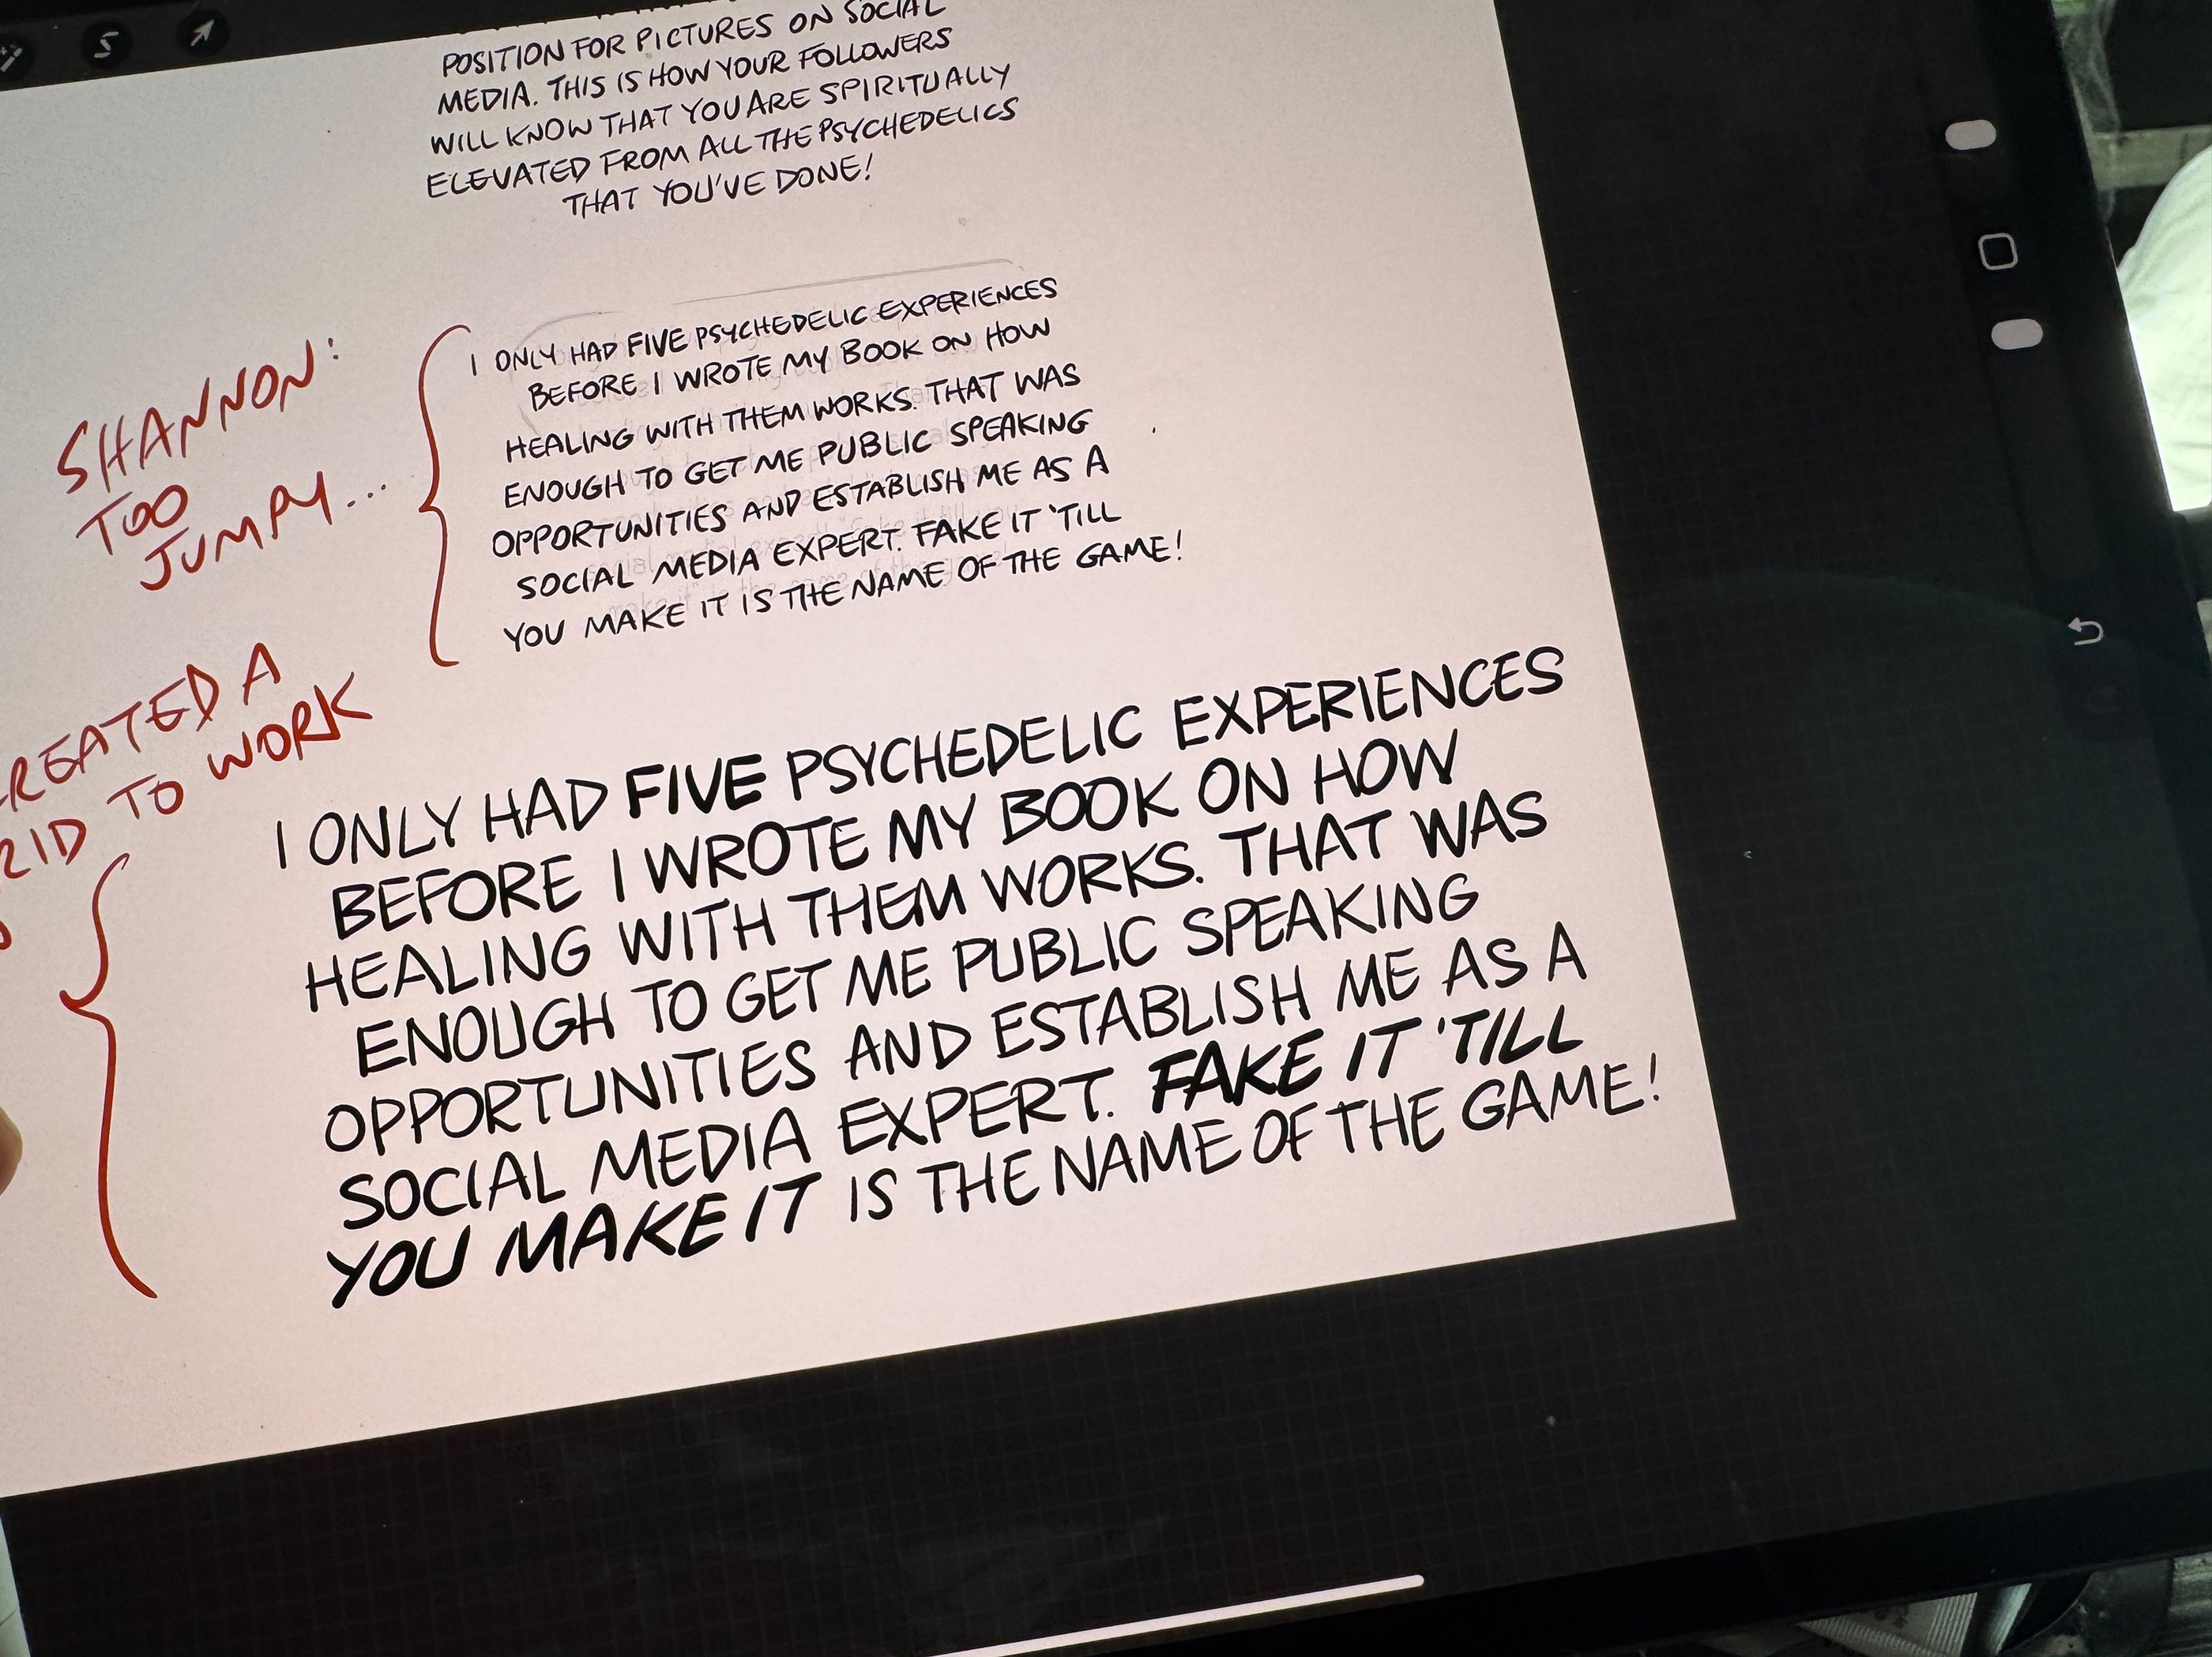 S
POSITION FOR PICTURES ON SOCIAL
MEDIA. THIS IS HOW YOUR FOLLOWERS
WILL KNOW THAT YOU ARE SPIRITUALLY
ELEVATED FROM ALL THE PSYCHEDELICS
THAT YOU'VE DONE!
SHANNON:
TOO
JUMPY...
I ONLY HAD FIVE PSYCHEDELIC EXPERIENCES
BEFORE I WROTE MY BOOK ON HOW
HEALING WITH THEM WORKS. THAT WAS
ENOUGH TO GET ME PUBLIC SPEAKING
OPPORTUNITIES AND ESTABLISH ME AS A
SOCIAL MEDIA EXPERT. FAKE IT 'TILL
YOU MAKE IT IS THE NAME OF THE GAME!
REATED A
RID TO WORK
I ONLY HAD FIVE PSYCHEDELIC EXPERIENCES
BEFORE I WROTE MY BOOK ON HOW
HEALING WITH THEM WORKS. THAT WAS
ENOUGH TO GET ME PUBLIC SPEAKING
OPPORTUNITIES AND ESTABLISH ME AS A
SOCIAL MEDIA EXPERT. FAKE IT 'TILL
YOU MAKE IT IS THE NAME OF THE GAME!